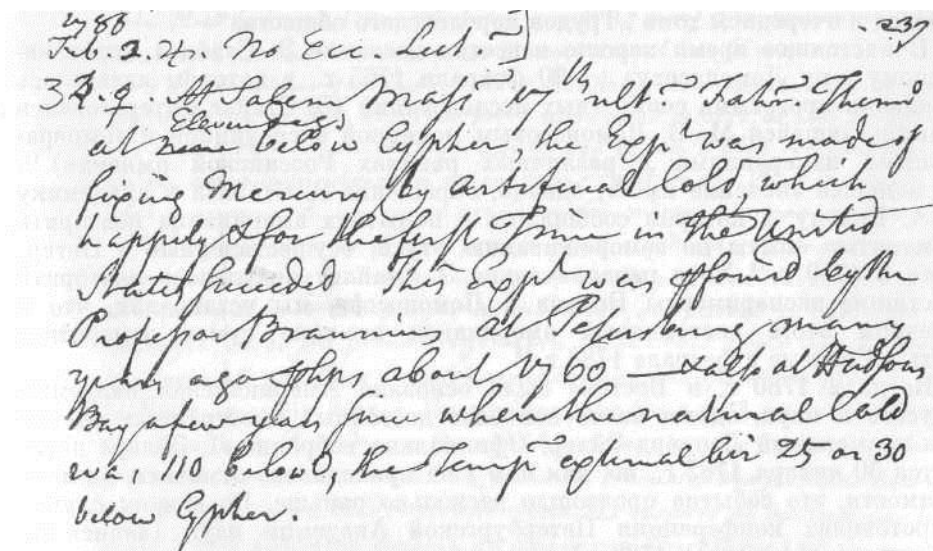 1788 239
Feb. 2. 4. No Exc. lect.
3 P. 9. At the Medl. Hall with nat. Therm.
at Eleven Deg. below Cypher, the Exp. was made of
fixing Mercury by artificial Cold which
happily & the the first time in the United
States succeeded This Exp. was offered by the
Professor Braunius at Petersburg many
years ago perhaps about 1760 & also at Hudsons
Bay a few years since when the natural Cold
was 110 below 0, the Temp. of the air 25 or 30
below Cypher